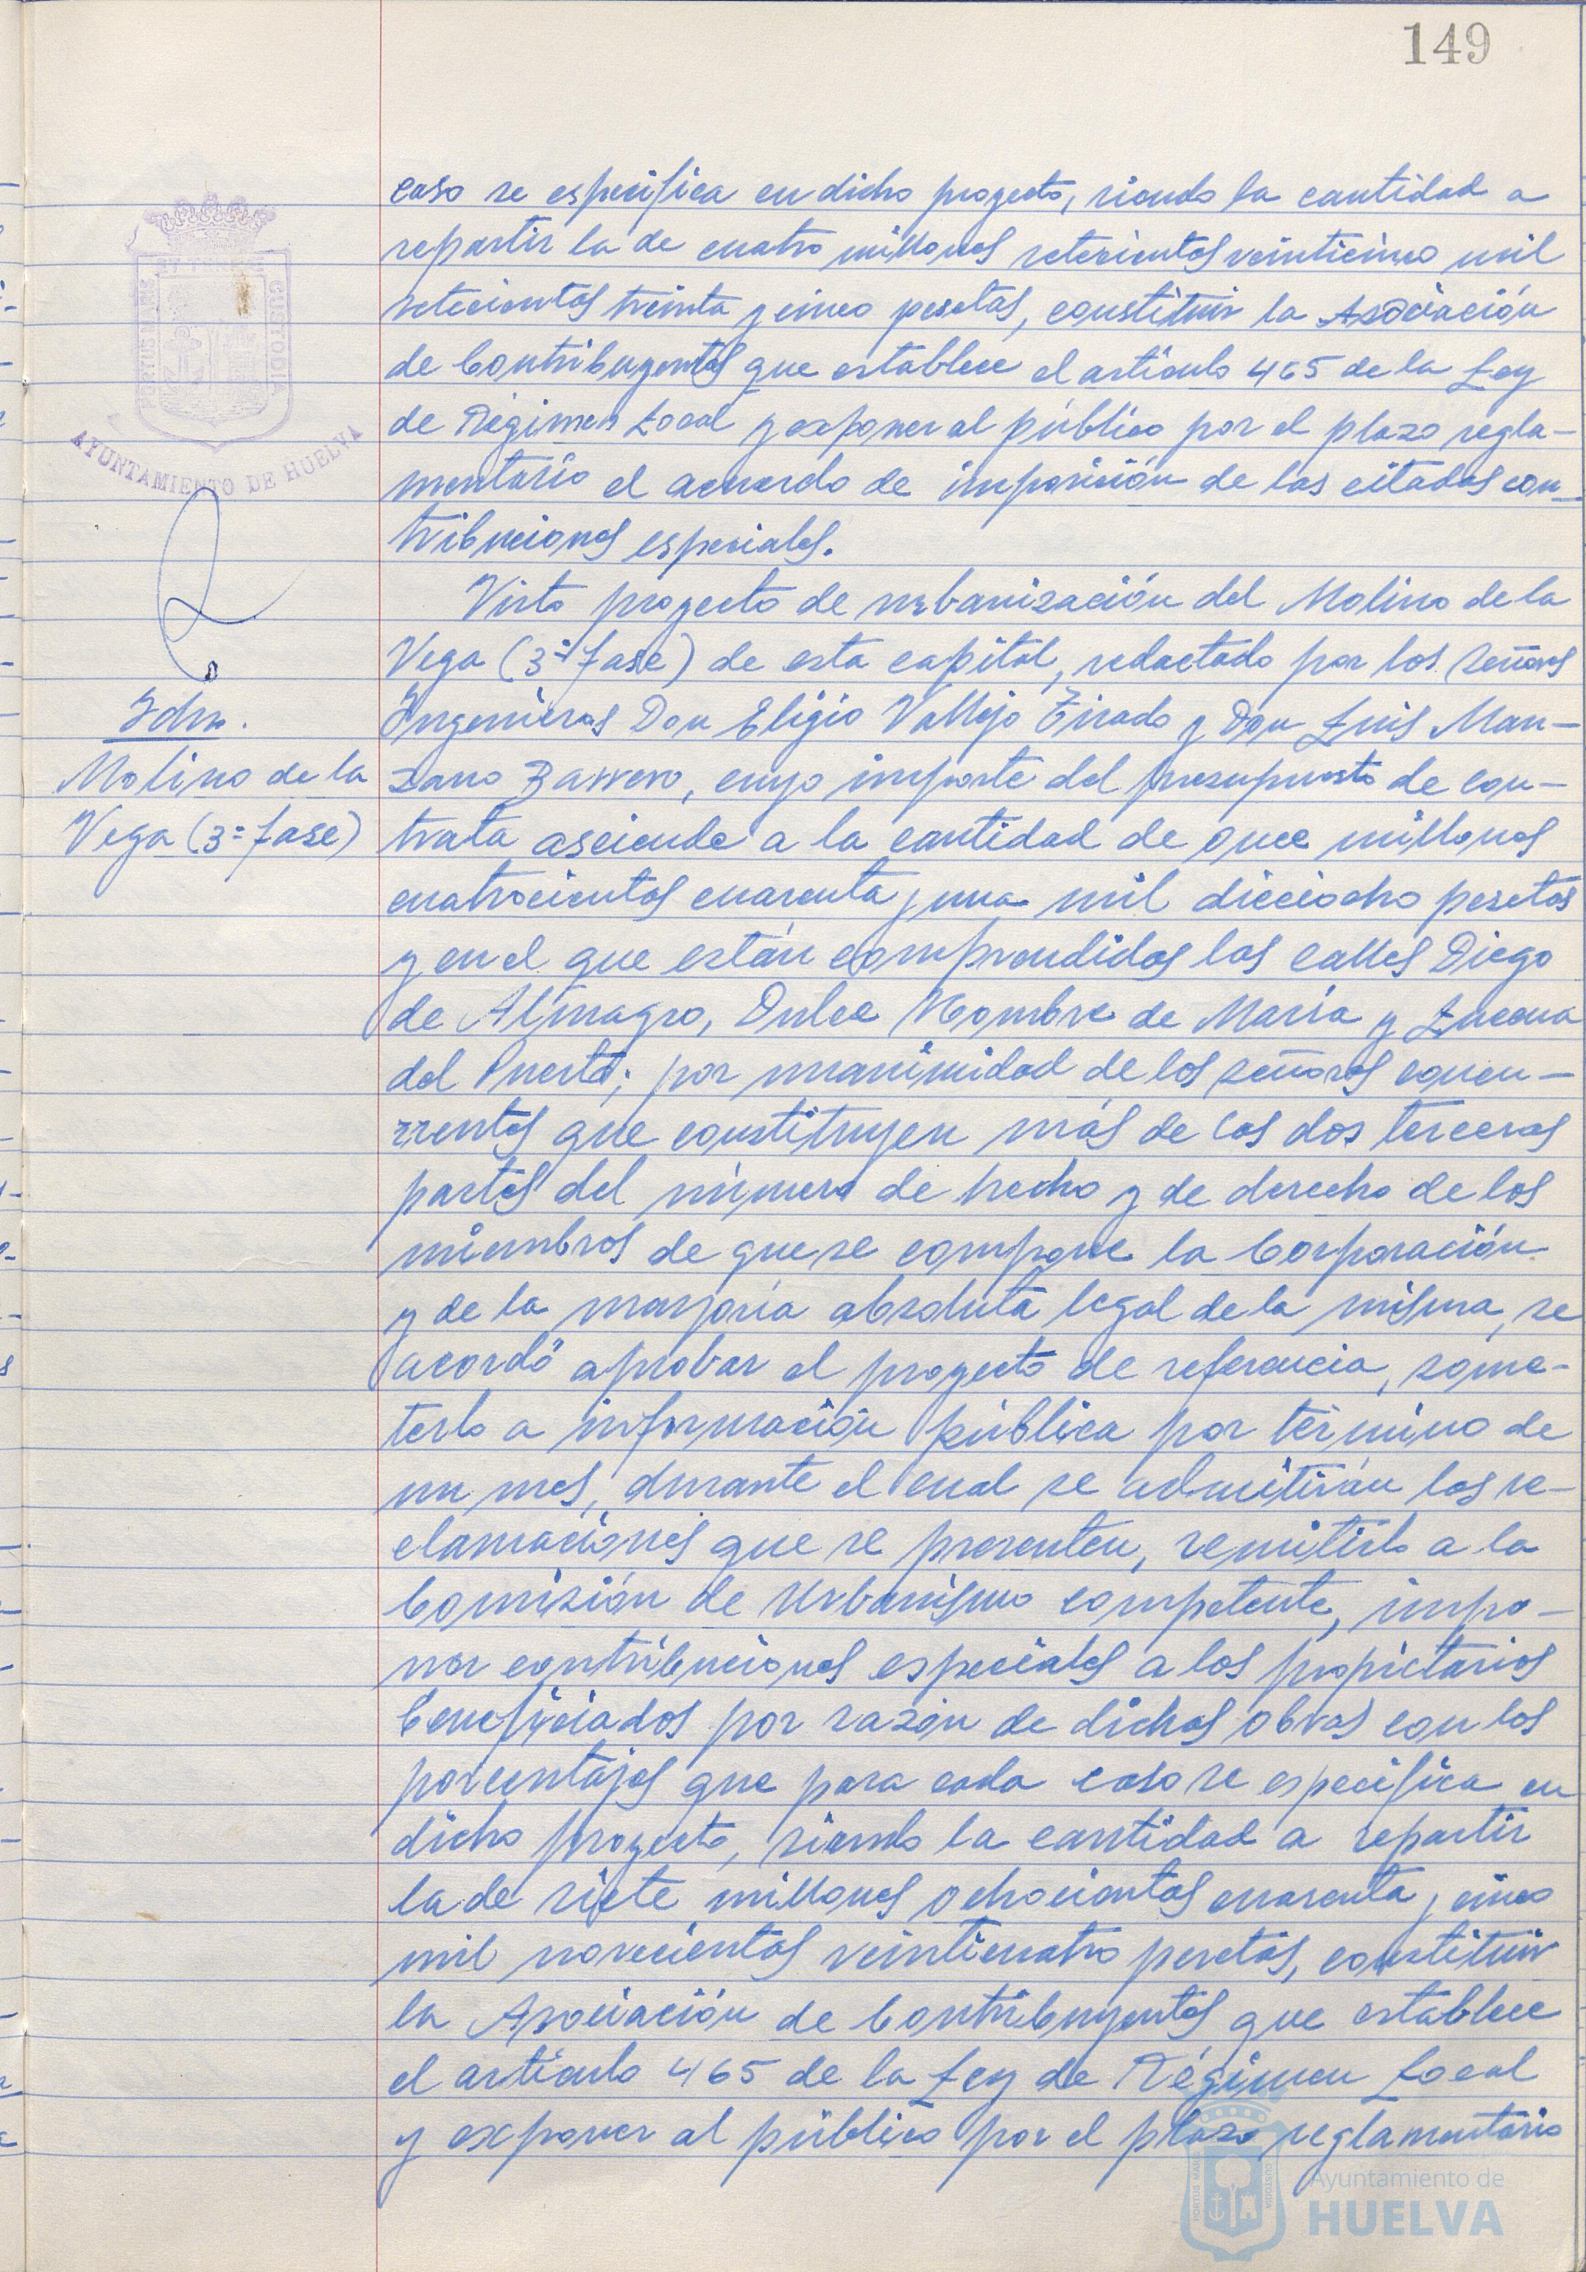 149
caso se especifica en dicho proyecto, siendo la cantidad a
repartir la de cuatro millones setecientos veinticinco mil
setecientos treinta y cinco pesetas, constituir la Asociación
de Contribuyentes que establece el artículo 465 de la Ley
de Régimen Local y exponer al público por el plazo regla-
mentario el acuerdo de imposición de las citadas con-
tribuciones especiales.
AYUNTAMIENTO DE HUELVA
PORTUS MARIS
ET TERRAE
CUSTODIA
Idm.
Molino de la
Vega (3ª fase)
Visto proyecto de urbanización del Molino de la
Vega (3ª fase) de esta capital, redactado por los señores
Ingenieros Don Eligio Vallejo Tirado y Don Luis Man-
zano Barrero, cuyo importe del presupuesto de con-
trata asciende a la cantidad de once millones
cuatrocientas cuarenta y una mil dieciocho pesetas
y en el que están comprendidas las calles Diego
de Almagro, Dulce Nombre de María y Lucena
del Puerto; por unanimidad de los señores concu-
rrentes que constituyen más de las dos terceras
partes del número de hecho y de derecho de los
miembros de que se compone la Corporación
y de la mayoría absoluta legal de la misma, se
acordó aprobar el proyecto de referencia, some-
terlo a información pública por término de
un mes, durante el cual se admitirán las re-
clamaciones que se presenten, remitirlo a la
Comisión de Urbanismo competente, impo-
ner contribuciones especiales a los propietarios
beneficiados por razón de dichas obras con los
porcentajes que para cada caso se especifica en
dicho proyecto, siendo la cantidad a repartir
la de siete millones ochocientas cuarenta y cinco
mil novecientas veinticuatro pesetas, constituir
la Asociación de Contribuyentes que establece
el artículo 465 de la Ley de Régimen Local
y exponer al público por el plazo reglamentario
Ayuntamiento de
HUELVA